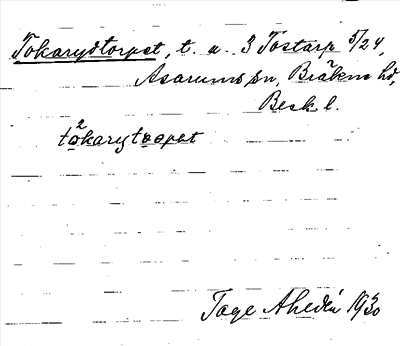 Tokarydstorpet, t. u. 3 Tostarp 5/24,
Asarums sn, Bräkne hd,
Blek. l.
2
tokarytorpet
Tage Ahldén 1930